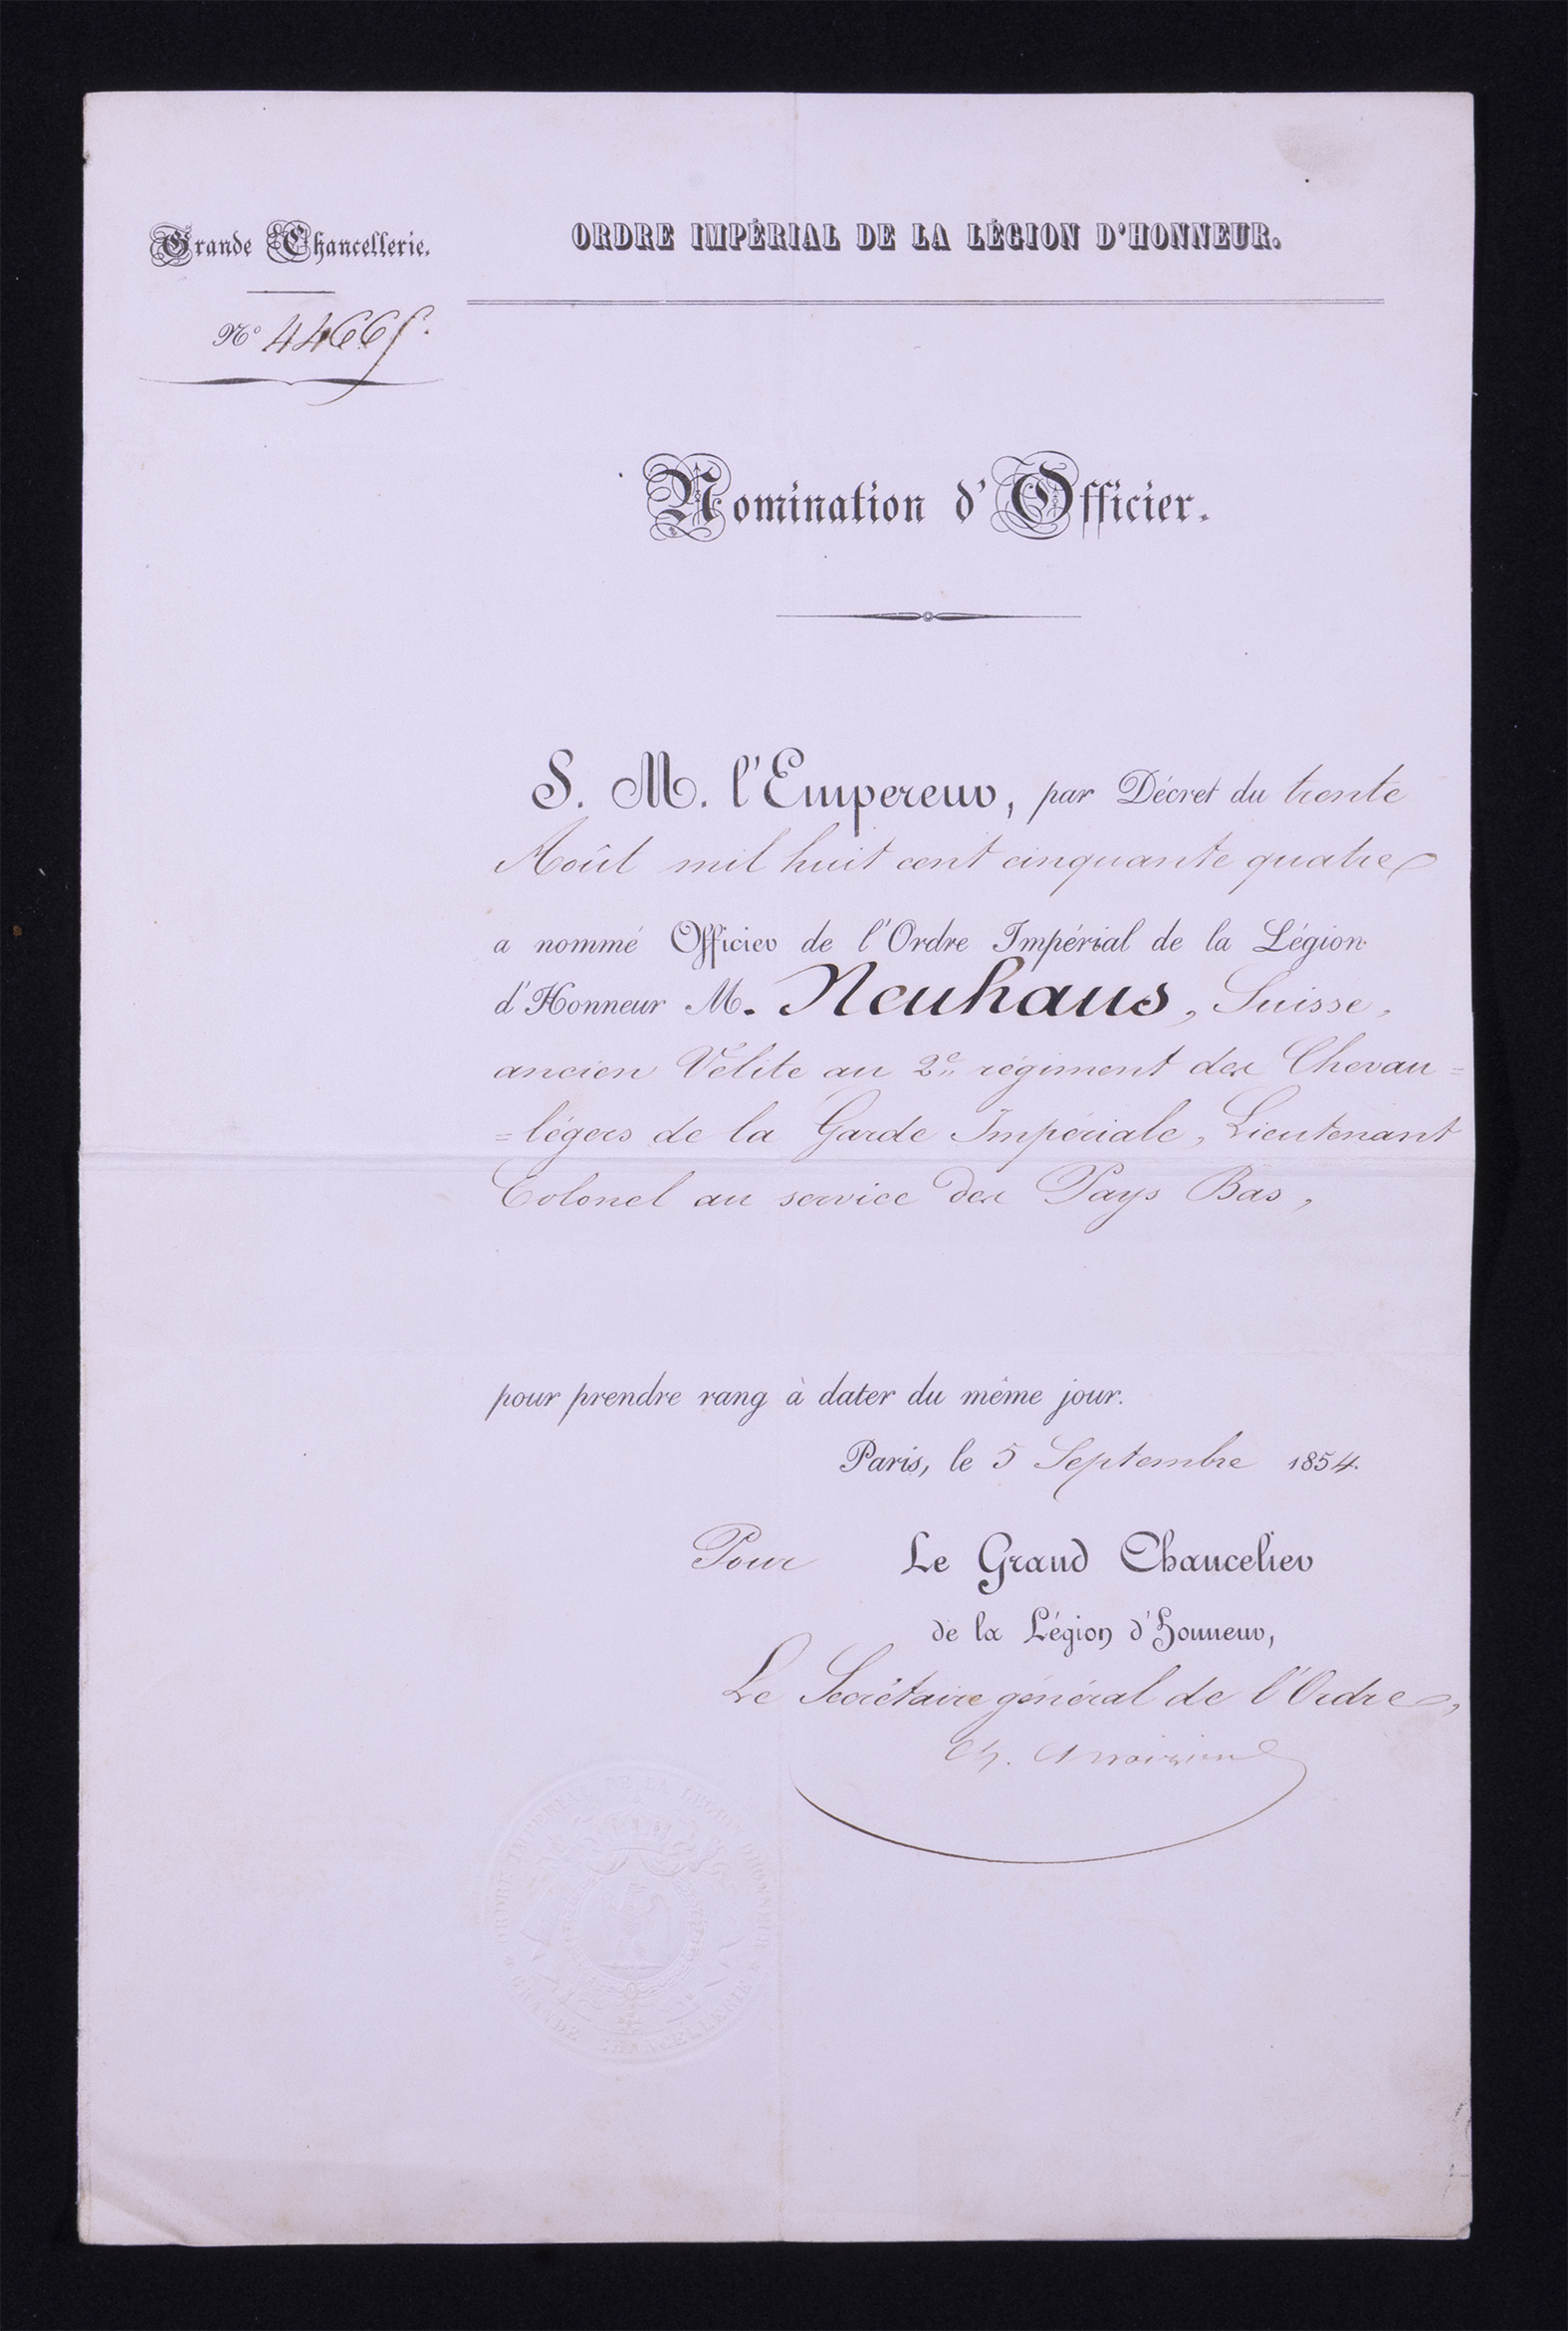 Grande Chancellerie.
ORDRE IMPÉRIAL DE LA LÉGION D'HONNEUR.
N° 44665.
Nomination d'Officier.
S. M. l'Empereur, par Décret du trente
Août mil huit cent cinquante quatre
a nommé Officier de l'Ordre Impérial de la Légion
d'Honneur M. Neuhaus, Suisse,
ancien Vélite au 2e régiment des Chevau=
=légers de la Garde Impériale, Lieutenant
Colonel au service des Pays Bas,
pour prendre rang à dater du même jour.
Paris, le 5 Septembre 1854.
Pour Le Grand Chancelier
de la Légion d'Honneur,
Le Secrétaire général de l'Ordre,
ORDRE IMPERIAL DE LA LEGION D'HONNEUR
* GRANDE CHANCELLERIE *